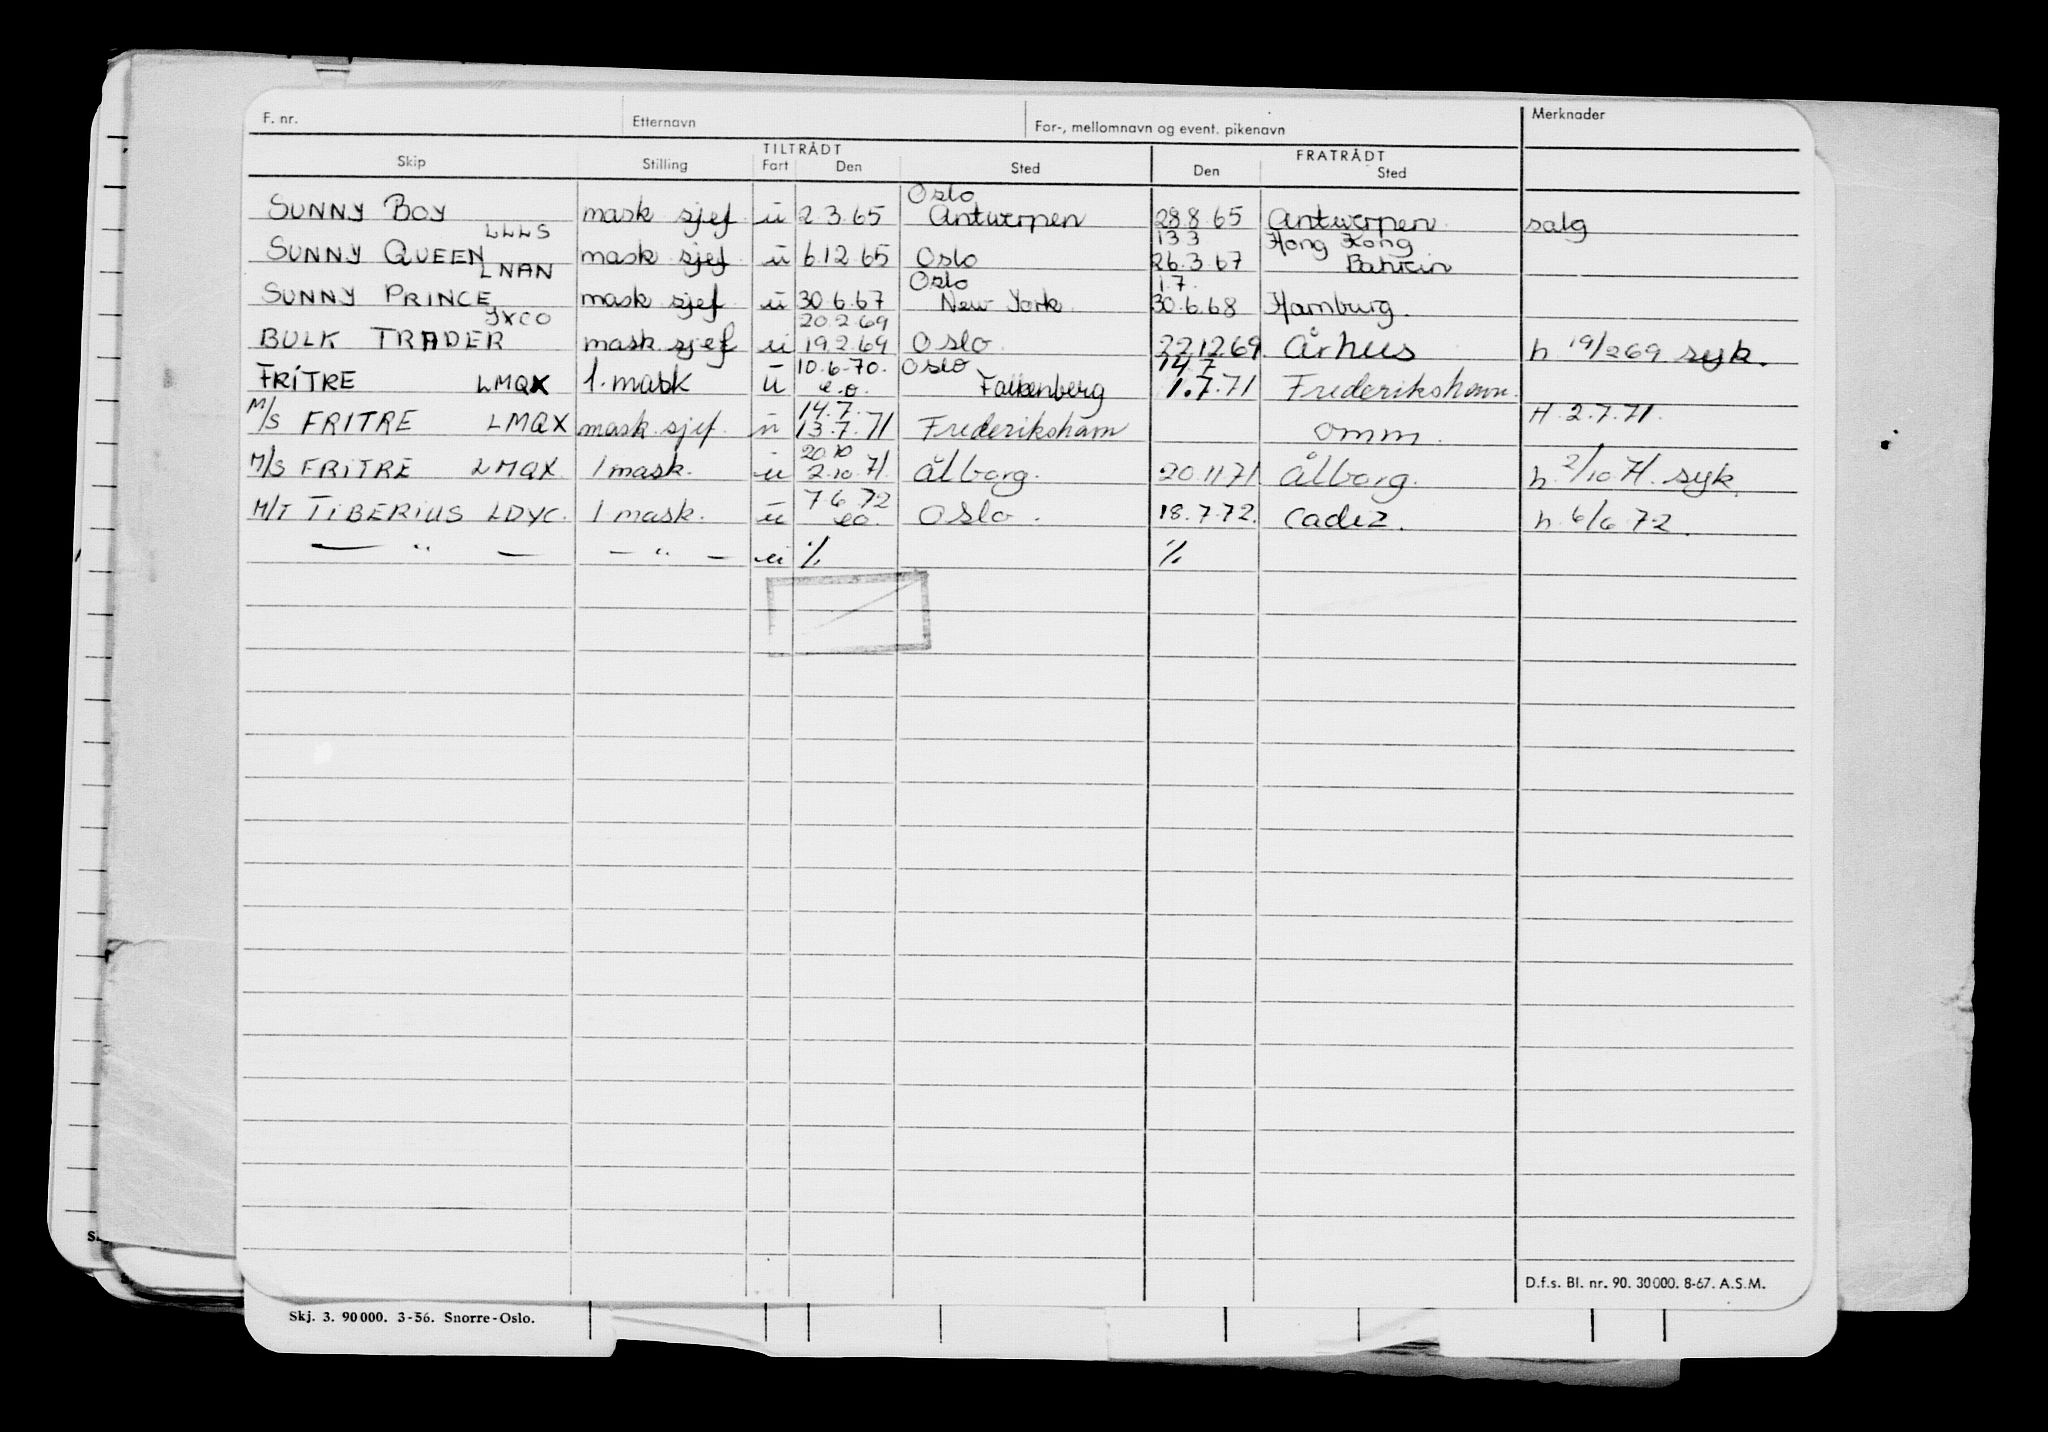 F. nr. Etternavn For-, mellomnavn og event. pikenavn Merknader
TILTRÅDT FRATRÅDT
Skip Stilling Fart Den Sted Den Sted
Oslo
SUNNY BOY mask sjef u 2 3.65 Antwerpen 28.8.65 Antwerpen. salg
LLLS 13 3 Hong Kong
SUNNY QUEEN mask sjef u 6.12.65 Oslo 26.3.67 Bahrein
LNAN Oslo 1.7.
SUNNY PRINCE mask sjef u 30.6.67 New York 30.6.68 Hamburg.
20.2.69
BULK TRADER mask sjef u 19.2.69 Oslo 22.12.69. Århus h 19/2 69 syk.
10.6-70. Oslo 14.7
FRITRE LMQX 1. mask u e.o. Falkenberg 1.7.71 Frederikshamn.
14.7.
M/S FRITRE LMQX mask.sjef. u 13.7.71 Frederiksham omm. H 2.7.71.
20 10
M/S FRITRE LMQX. 1 mask. u 2.10.71. Ålborg. 20.11.71 Ålborg. h. 2/10 71. syk.
7 6 72
M/T TIBERIUS LDYC. 1 mask. u eo. Oslo. 18.7.72. Cadiz. h. 6/6 72.
— " — — " — u % %
D.f.s. Bl. nr. 90. 30000. 8-67. A.S.M.
Skj. 3. 90000. 3-56. Snorre-Oslo.